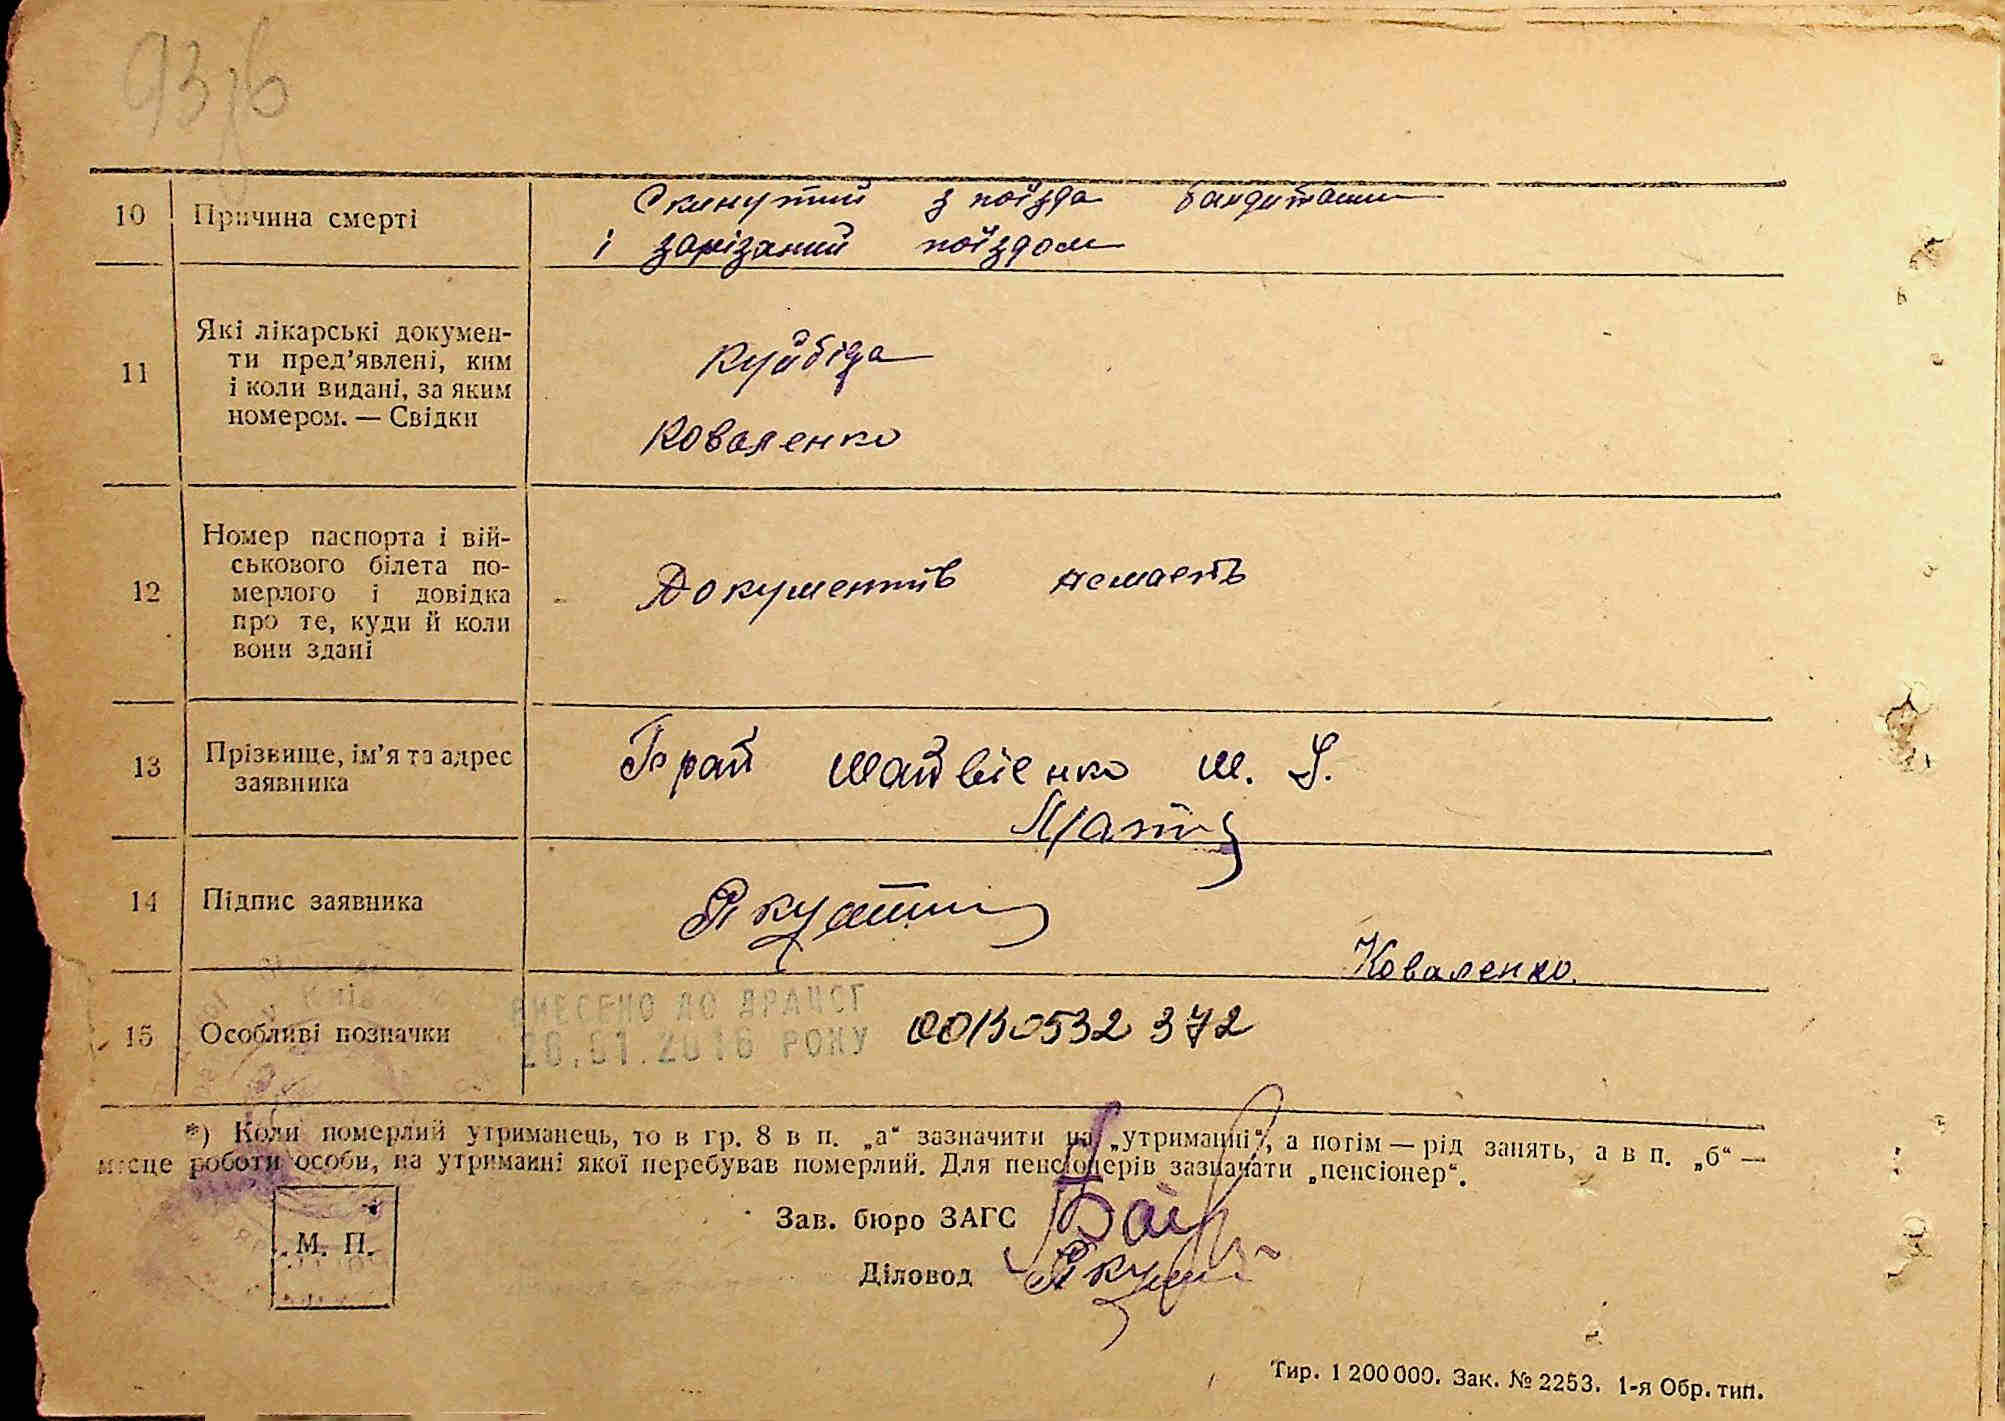 93/б
10 Причина смерті Скинутий з поїзда бандитами
і зарізаний поїздом
11 Які лікарські докумен-
ти пред’явлені, ким
і коли видані, за яким
номером. — Свідки
Куйбіда
Коваленко
12 Номер паспорта і вій-
ськового білета по-
мерлого і довідка
про те, куди й коли
вони здані
Документів немаєть
13 Прізвище, ім’я та адрес
заявника
Брат Матвієнко М.
14 Підпис заявника
Коваленко.
15 Особливі позначки
ВНЕСЕНО ДО ДРАЦСГ
20.01.2016 РОКУ
00130532372
*) Коли померлий утриманець, то в гр. 8 в п. „а“ зазначити на „утриманні“, а потім — рід занять, а в п. „б“ —
місце роботи особи, на утриманні якої перебував померлий. Для пенсіонерів зазначати „пенсіонер“.
М. П.
Зав. бюро ЗАГС
Діловод
Тир. 1 200 000. Зак. № 2253. 1-я Обр. тип.